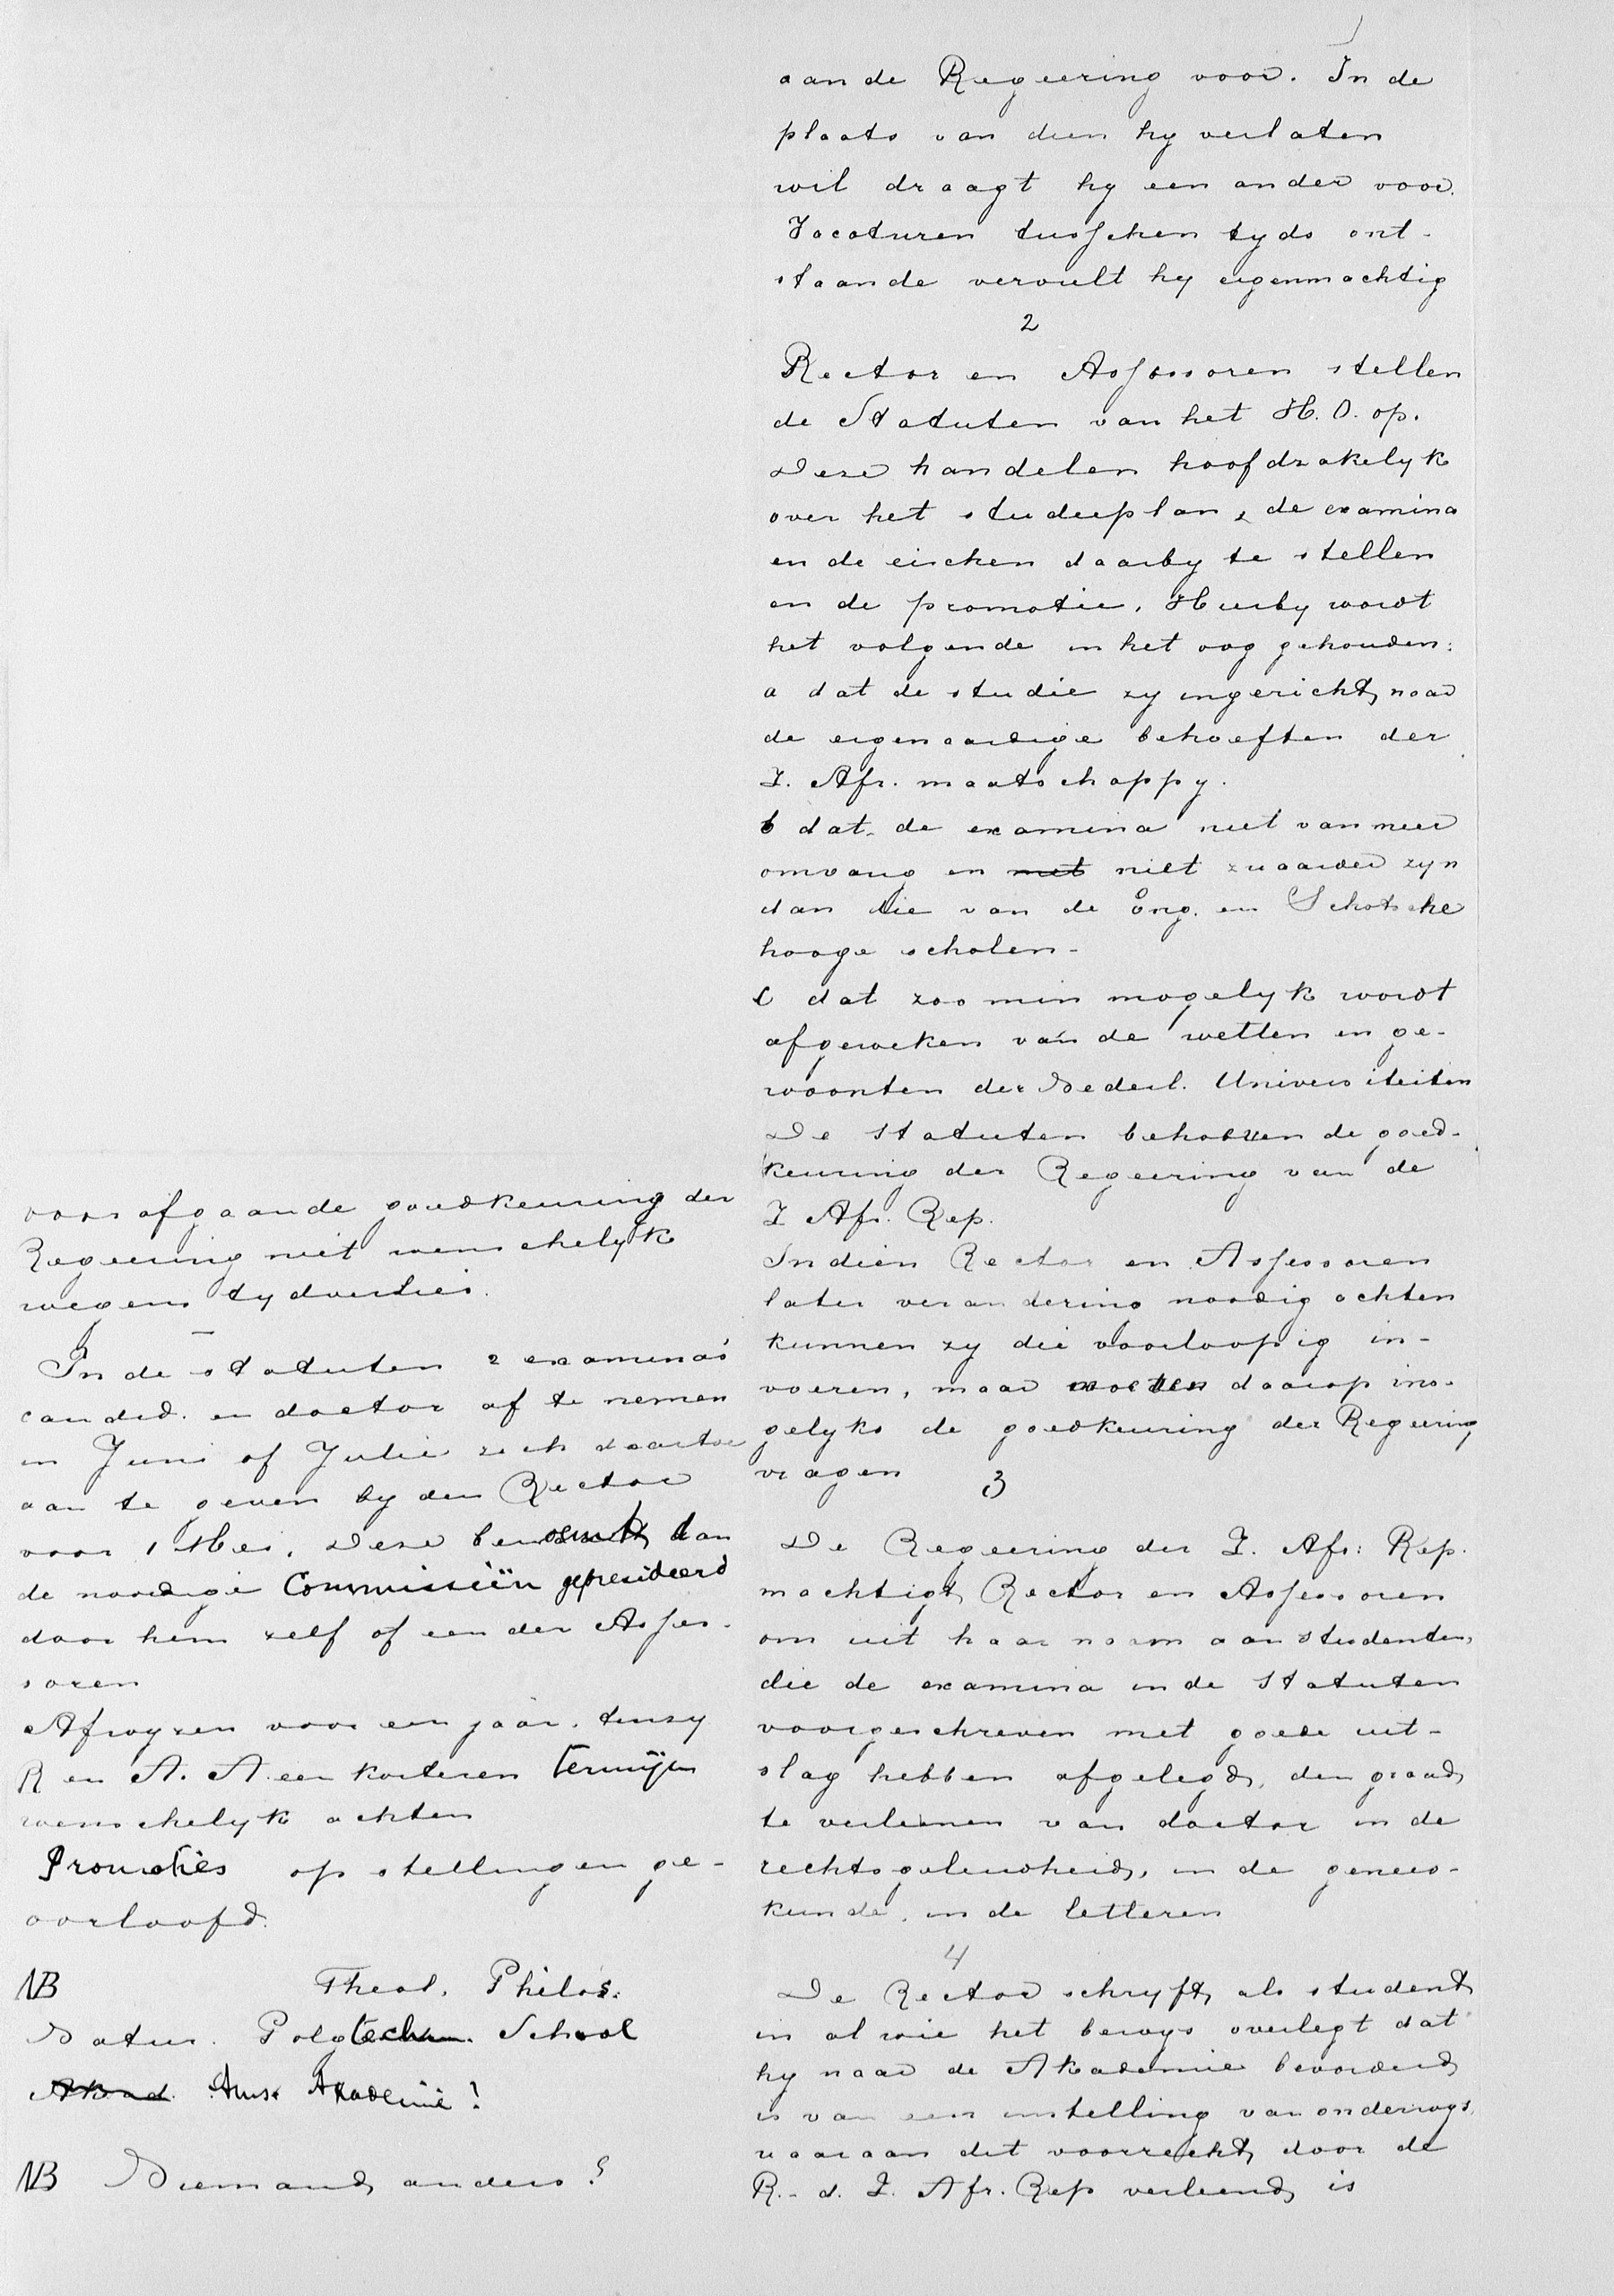 aan de Regeering voor. In de
plaats van dien hy verlaten
wil draagt hy een ander voor.
Vacaturen tusschen tyds ont-
staande vervult hy eigenmachtig
2
Rector en Assessoren stellen
de Statuten van het H. O. op.
Deze handelen hoofdzakelyk
over het studieplan, de examina
en de eischen daarby te stellen
en de promotie. Hierby wordt
het volgende in het oog gehouden:
a dat de studie zy ingericht naar
de eigenaardige behoeften der
Z. Afr. maatschappy.
b dat de examina niet van meer
omvang en niet zwaarder zyn
dan die van de Eng. en Schotsche
hooge scholen-
c dat zoo min mogelyk wordt
afgeweken van de wetten en ge-
woonten der Nederl. Universiteiten
De Statuten behoeven de goed-
keuring der Regeering van de
Z Afr. Rep.
Indien Rector en Assessoren
later verandering noodig achten
kunnen zy die voorloopig in-
voeren, maar moeten daarop ins-
gelyks de goedkeuring der Regeering
vragen
3
De Regeering der Z. Afr. Rep.
machtigt Rector en Assessoren
om uit haar naam aan studenten,
die de examina in de Statuten
voorgeschreven met goede uit-
slag hebben afgelegd, den graad
te verleenen van doctor in de
rechtsgeleerdheid, in de genees-
kunde, in de letteren
4
De Rector schryft als student
in al wie het bewys overlegt dat
hy naar de Akademie bevorderd
is van een instelling van onderwys,
waaraan dit voorrecht door de
R. d. Z. Afr. Rep verleend is
voorafgaande goedkeuring der
Regeering niet wenschelyk
wegens tydverlies.
In de statuten 2 examina's
candid. en doctor af te nemen
in Juni of Julie zich daartoe
aan te geven by den Rector
voor 1 Mei. Deze benoemt dan
de noodige Commissiën gepresideerd
door hem zelf of een der Asses-
soren
Afwyzen voor een jaar, tenzy
R en A. A een korteren termijn
wenschelyk achten
Promoties op stellingen ge-
oorloofd.
NB Theol. Philos.
Natur. Polytechn. School
Akad. Amst Akademie!
NB Niemand anders?